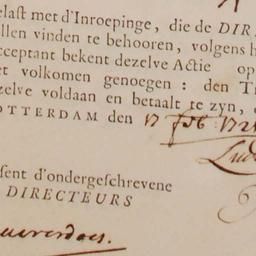 elast met d'Inroepinge, die de DIR
llen vinden te behooren, volgens h
cceptant bekent dezelve Actie op
et volkomen genoegen : den T
zelve voldaan en betaalt te zyn,
OTTERDAM den 17
sent d'ondergeschrevene
DIRECTEURS